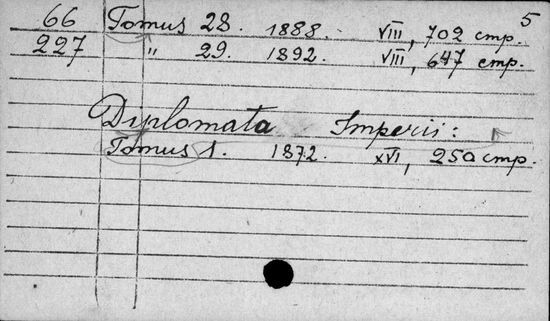 5
66 Tomus 28. 1888. VIII, 702 стр.
227 " 29. 1892. VIII, 647 стр.
Diplomata Imperii:
Tomus 1. 1872. XVI, 250 стр.